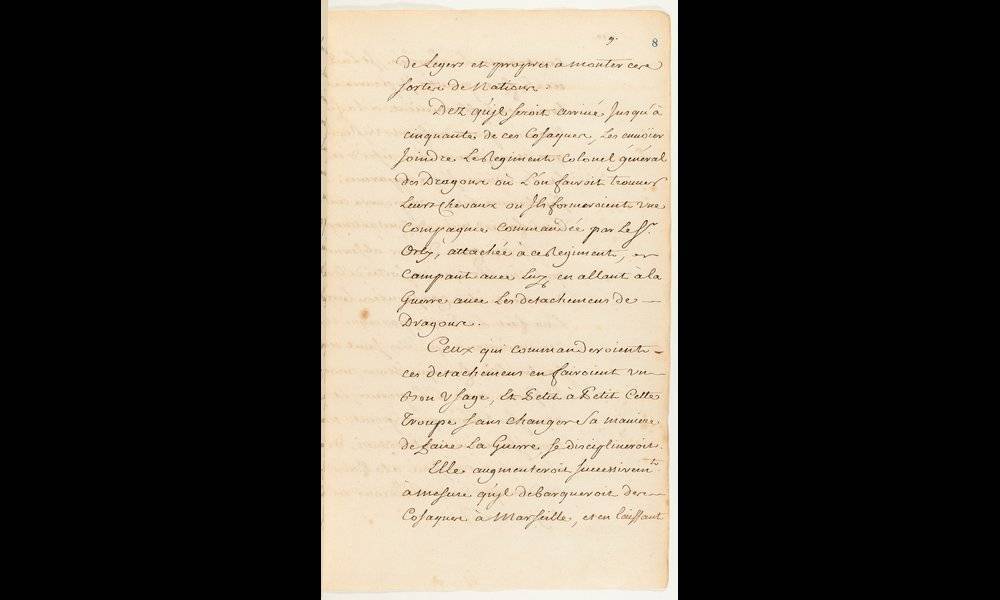 9. 8
de Legers et propres a monter ces
sortes de Nations.
Dez qu'jl seroit arrivé Jusqu'à
cinquante de ces Cosaques, Les envoïer
Joindre Le Regiment Colonel général
des Dragons où L'on fairoit trouver
Leurs chevaux ou Jls formeroient vne
Compagnie commandée par Le Sr.
Orly, attachée à ce Regiment, et
Campant avec Luy, en allant à la
Guerre avec Les detachemens de
Dragons.
Ceux qui commanderoient
ces detachemens en fairoient vn
Bon Vsage, Et Petit à Petit Cette
Troupe sans changer Sa maniere
de faire La Guerre se disciplineroit.
Elle augmenteroit successivemt.
à mesure qu'jl debarqueroit des
Cosaques à Marseille, et en laissant